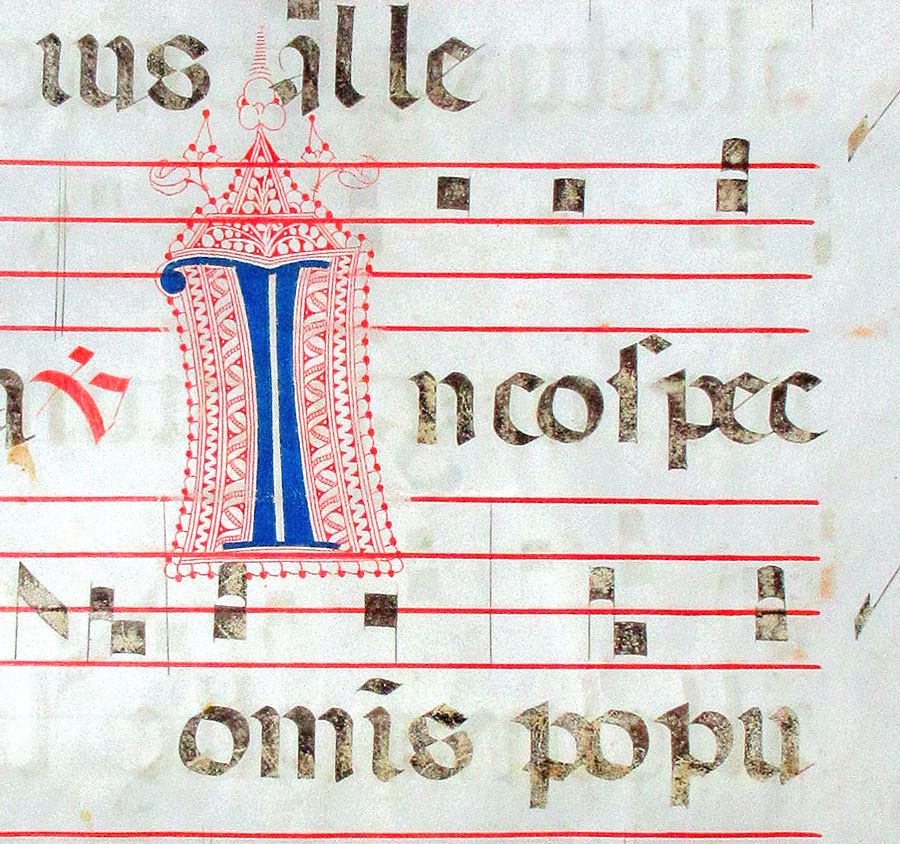 ius ille
℣ Incoſpec
omīs popu